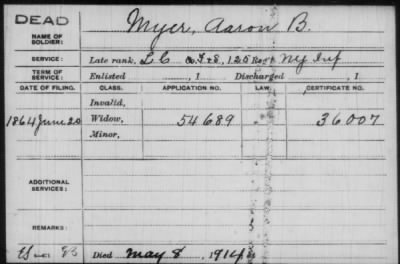 DEAD
NAME OF SOLDIER: Myer, Aaron B.
SERVICE: Late rank, L C Co. F & S, 125 Reg't NY Inf
TERM OF SERVICE: Enlisted , 1 Discharged , 1
DATE OF FILING. CLASS. APPLICATION NO. LAW. CERTIFICATE NO.
Invalid,
1864 June 20 Widow, 54689 36007
Minor,
ADDITIONAL SERVICES:
REMARKS:
Died May 8, 1914